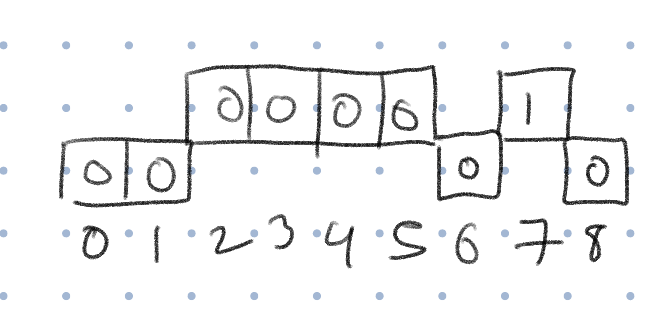 0 0 0 0 1
0 0 0 0
0 1 2 3 4 5 6 7 8